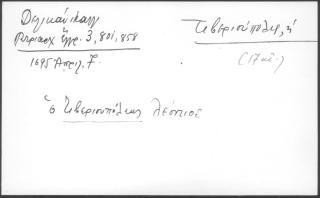 Δελικάνη
Πατριαρχ. Ἔγγρ. 3, 801, 858
1695 Απριλ. 7.
Τιβεριούπολις, ἡ
(17 αἰ.)
ὁ Τιβεριουπόλεως Λεόντιος